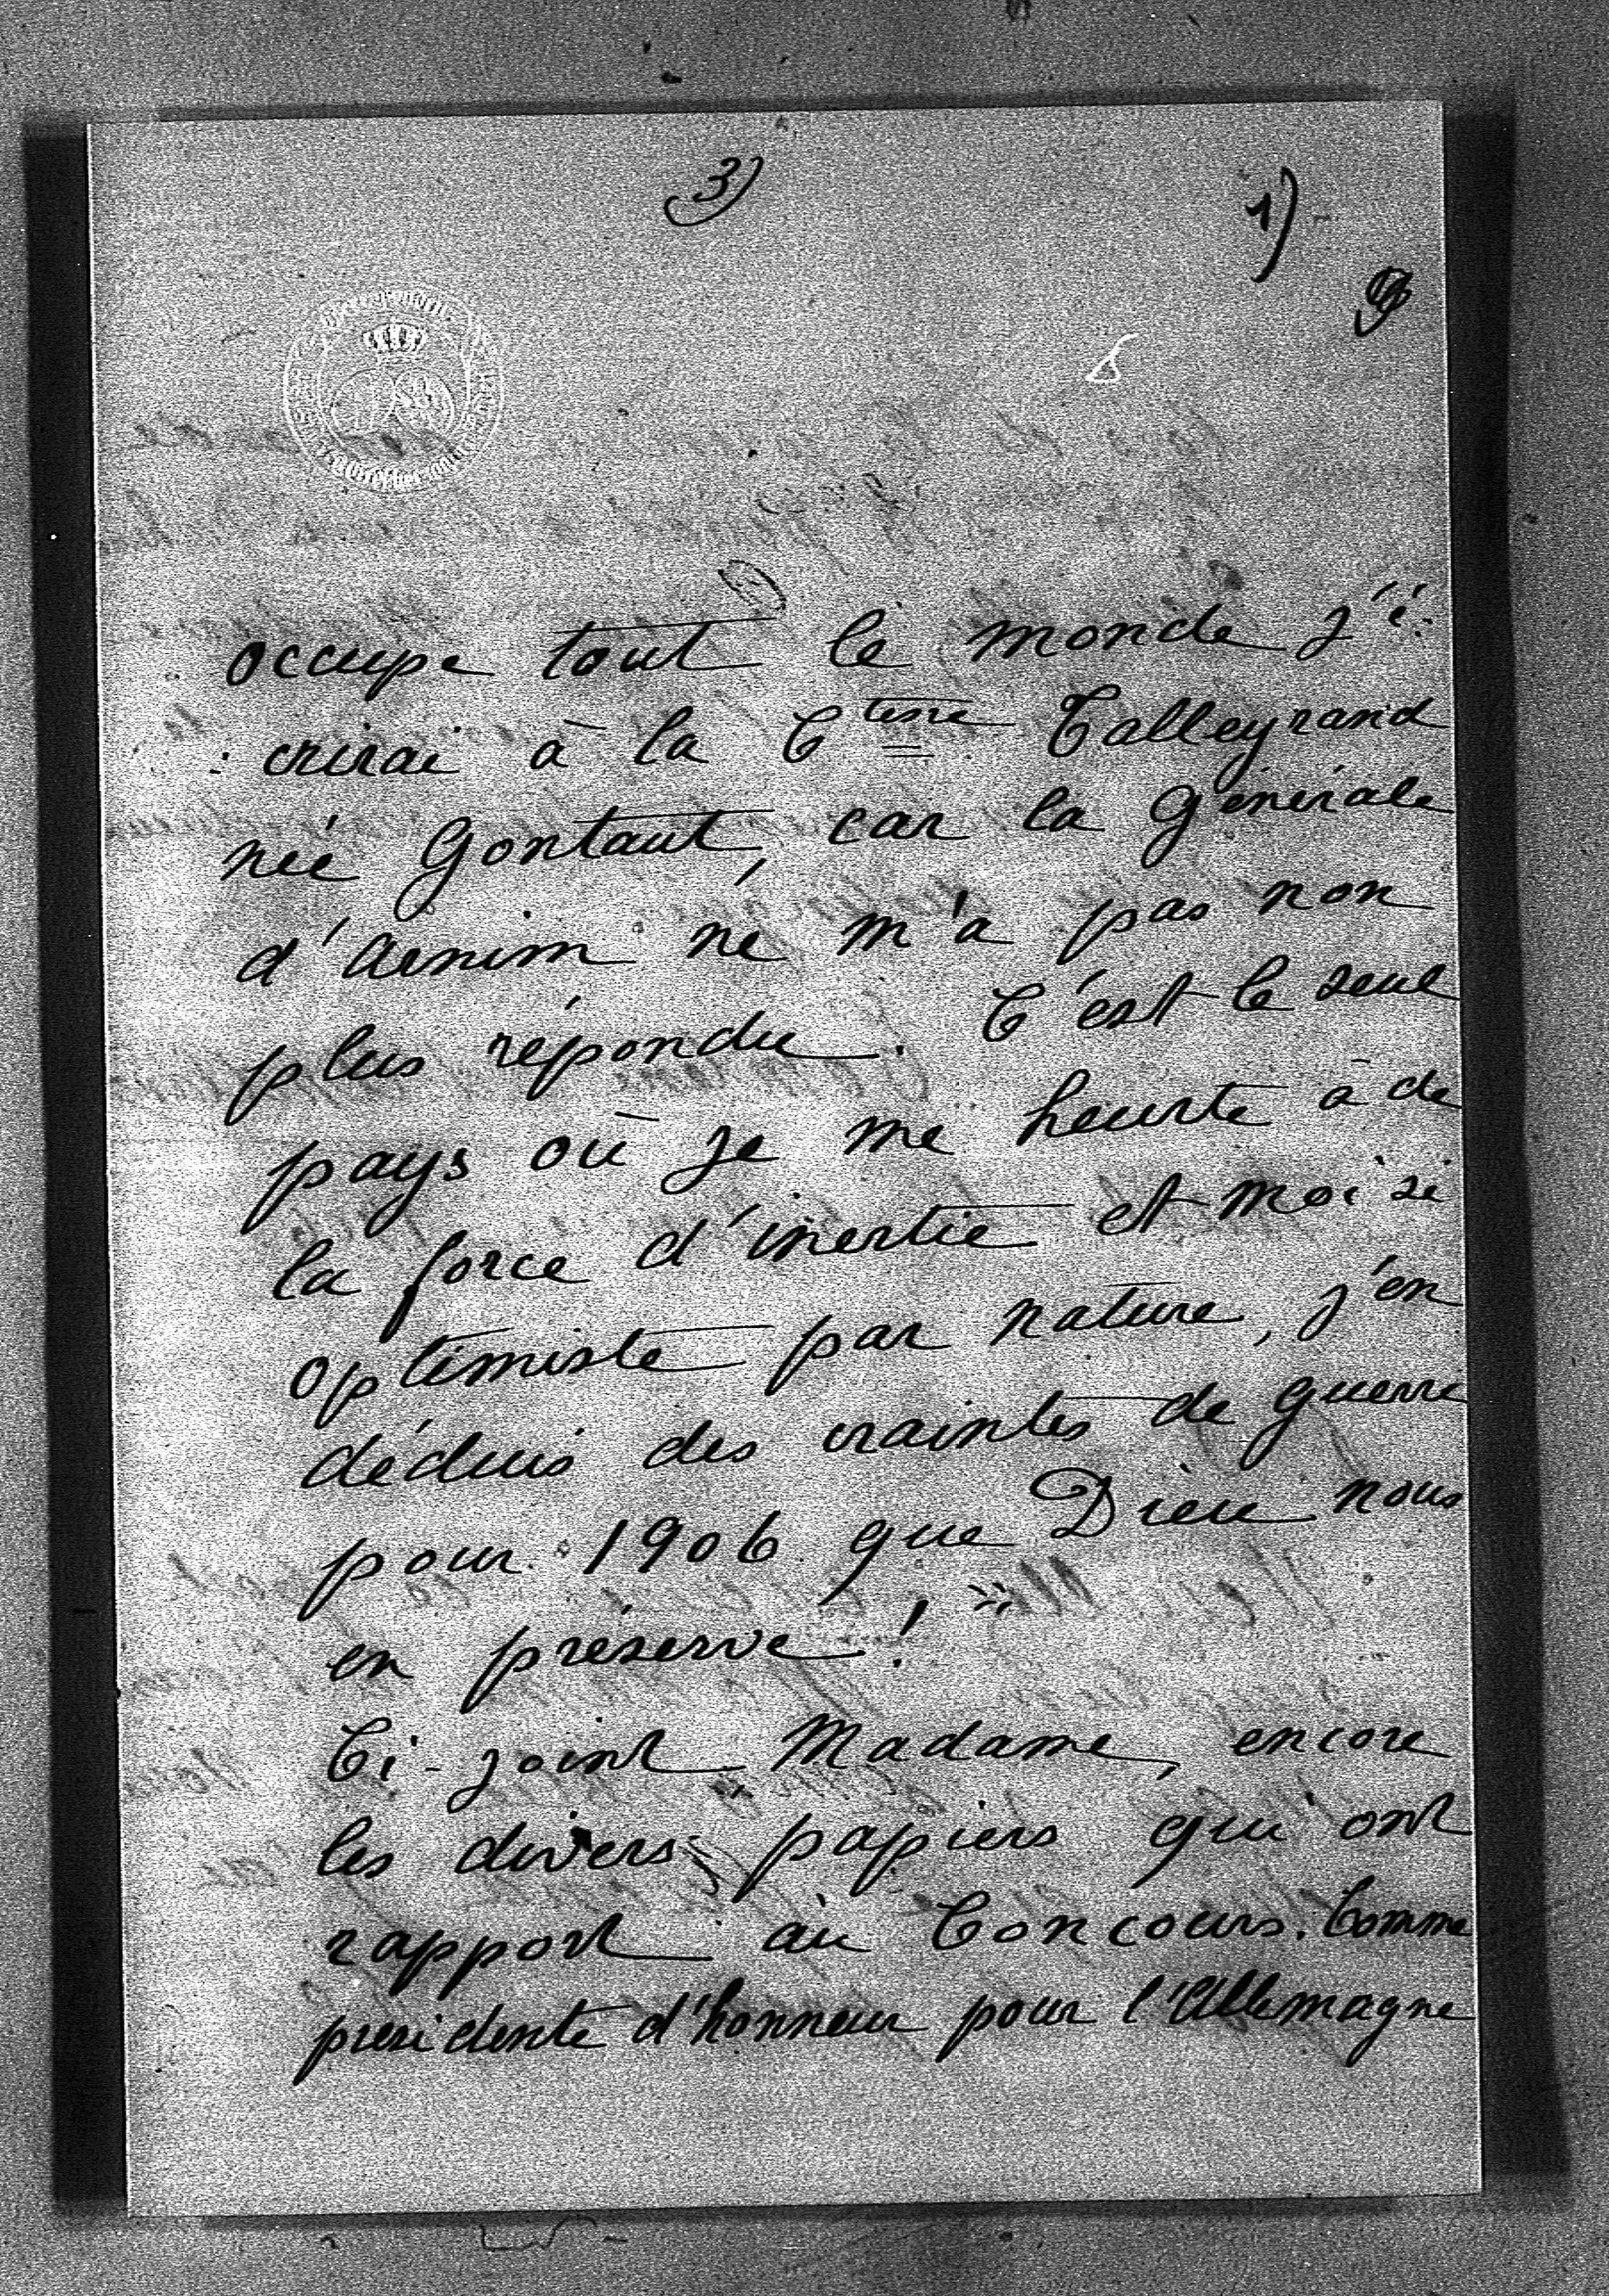 3)
1)
occupe tout le monde j'é:
: crirai à la Ctesse Talleyrand
née Gontaut, car la Générale
d'Arnim ne m'a pas non
plus répondu. C'est le seul
pays où je me heurte à de
la force d'inertie et moi si
optimiste par nature, j'en
déduis des craintes de guerre
pour 1906 que Dieu nous
en préserve! "
Ci-joint Madame, encore
les divers papiers qui ont
rapport au Concours. Comme
presidente d'honneur pour l'Allemagne